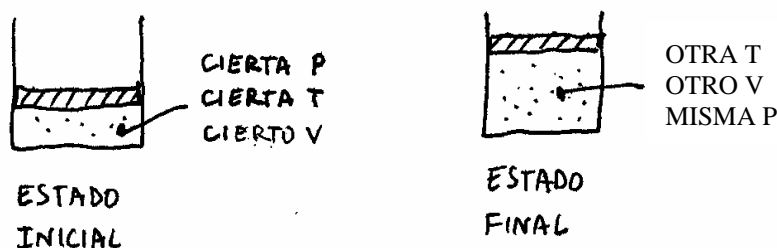 CIERTA P
CIERTA T
CIERTO V
ESTADO
INICIAL
OTRA T
OTRO V
MISMA P
ESTADO
FINAL